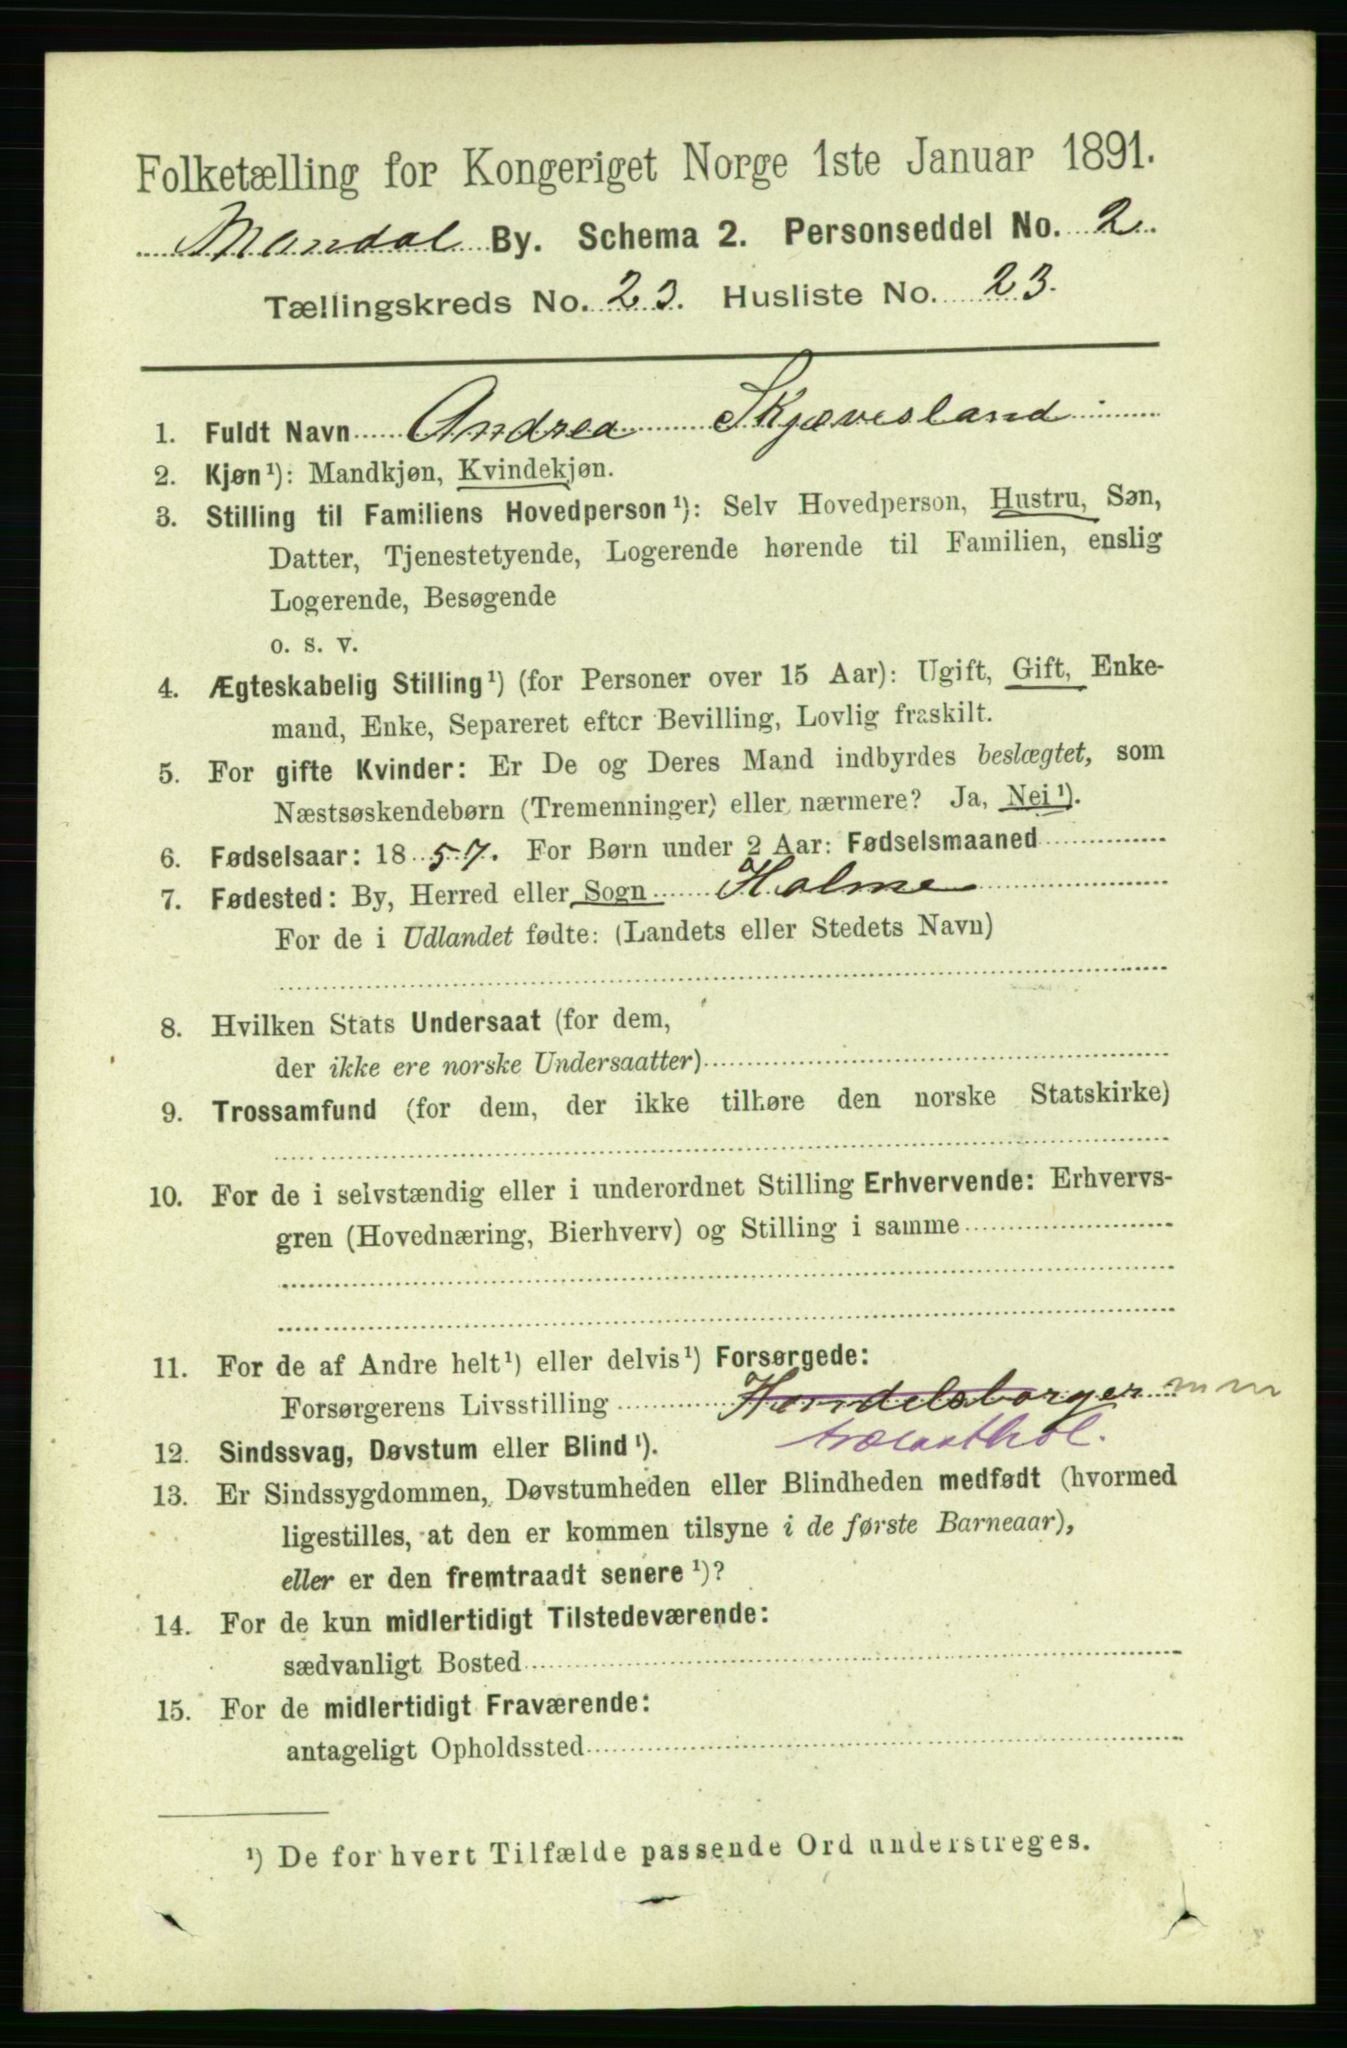 Folketælling for Kongeriget Norge 1ste Januar 1891.
Mandal By. Schema 2. Personseddel No. 2.
Tællingskreds No. 23. Husliste No. 23.
1. Fuldt Navn Andrea Skjævesland
2. Kjøn ¹): Mandkjøn, Kvindekjøn.
3. Stilling til Familiens Hovedperson ¹): Selv Hovedperson, Hustru, Søn,
Datter, Tjenestetyende, Logerende hørende til Familien, enslig
Logerende, Besøgende
o. s. v.
4. Ægteskabelig Stilling ¹) (for Personer over 15 Aar): Ugift, Gift, Enke-
mand, Enke, Separeret efter Bevilling, Lovlig fraskilt.
5. For gifte Kvinder: Er De og Deres Mand indbyrdes beslægtet, som
Næstsøskendebørn (Tremenninger) eller nærmere? Ja, Nei ¹).
6. Fødselsaar: 1857. For Børn under 2 Aar: Fødselsmaaned
7. Fødested: By, Herred eller Sogn Holme
For de i Udlandet fødte: (Landets eller Stedets Navn)
8. Hvilken Stats Undersaat (for dem,
der ikke ere norske Undersaatter)
9. Trossamfund (for dem, der ikke tilhøre den norske Statskirke)
10. For de i selvstændig eller i underordnet Stilling Erhvervende: Erhvervs-
gren (Hovednæring, Bierhverv) og Stilling i samme
11. For de af Andre helt ¹) eller delvis ¹) Forsørgede:
Forsørgerens Livsstilling Handelsborger m m
trælasthol.
12. Sindssvag, Døvstum eller Blind ¹).
13. Er Sindssygdommen, Døvstumheden eller Blindheden medfødt (hvormed
ligestilles, at den er kommen tilsyne i de første Barneaar),
eller er den fremtraadt senere ¹)?
14. For de kun midlertidigt Tilstedeværende:
sædvanligt Bosted
15. For de midlertidigt Fraværende:
antageligt Opholdssted
¹) De for hvert Tilfælde passende Ord understreges.